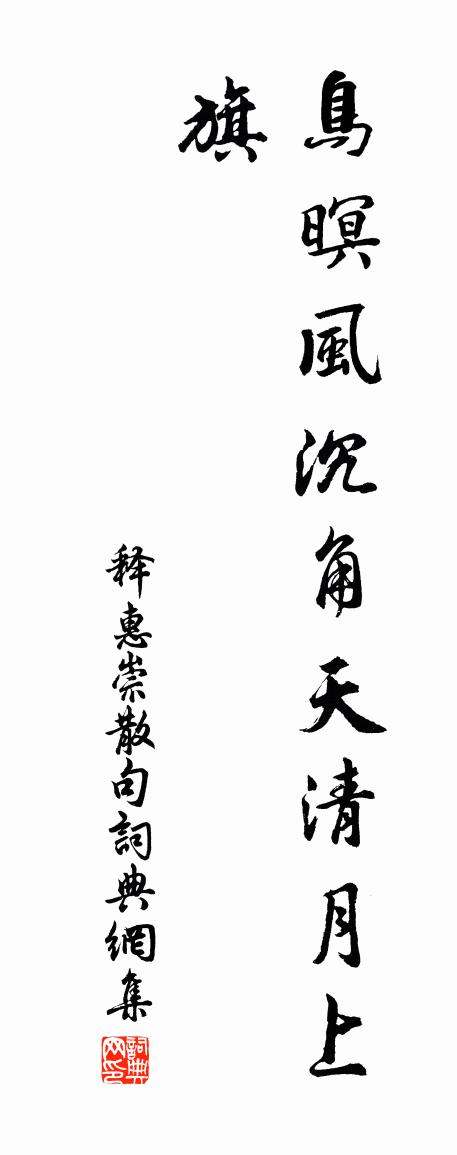 鳥暝風沉角天清月上
旗
释惠崇散句詞典網集
詞典
网印